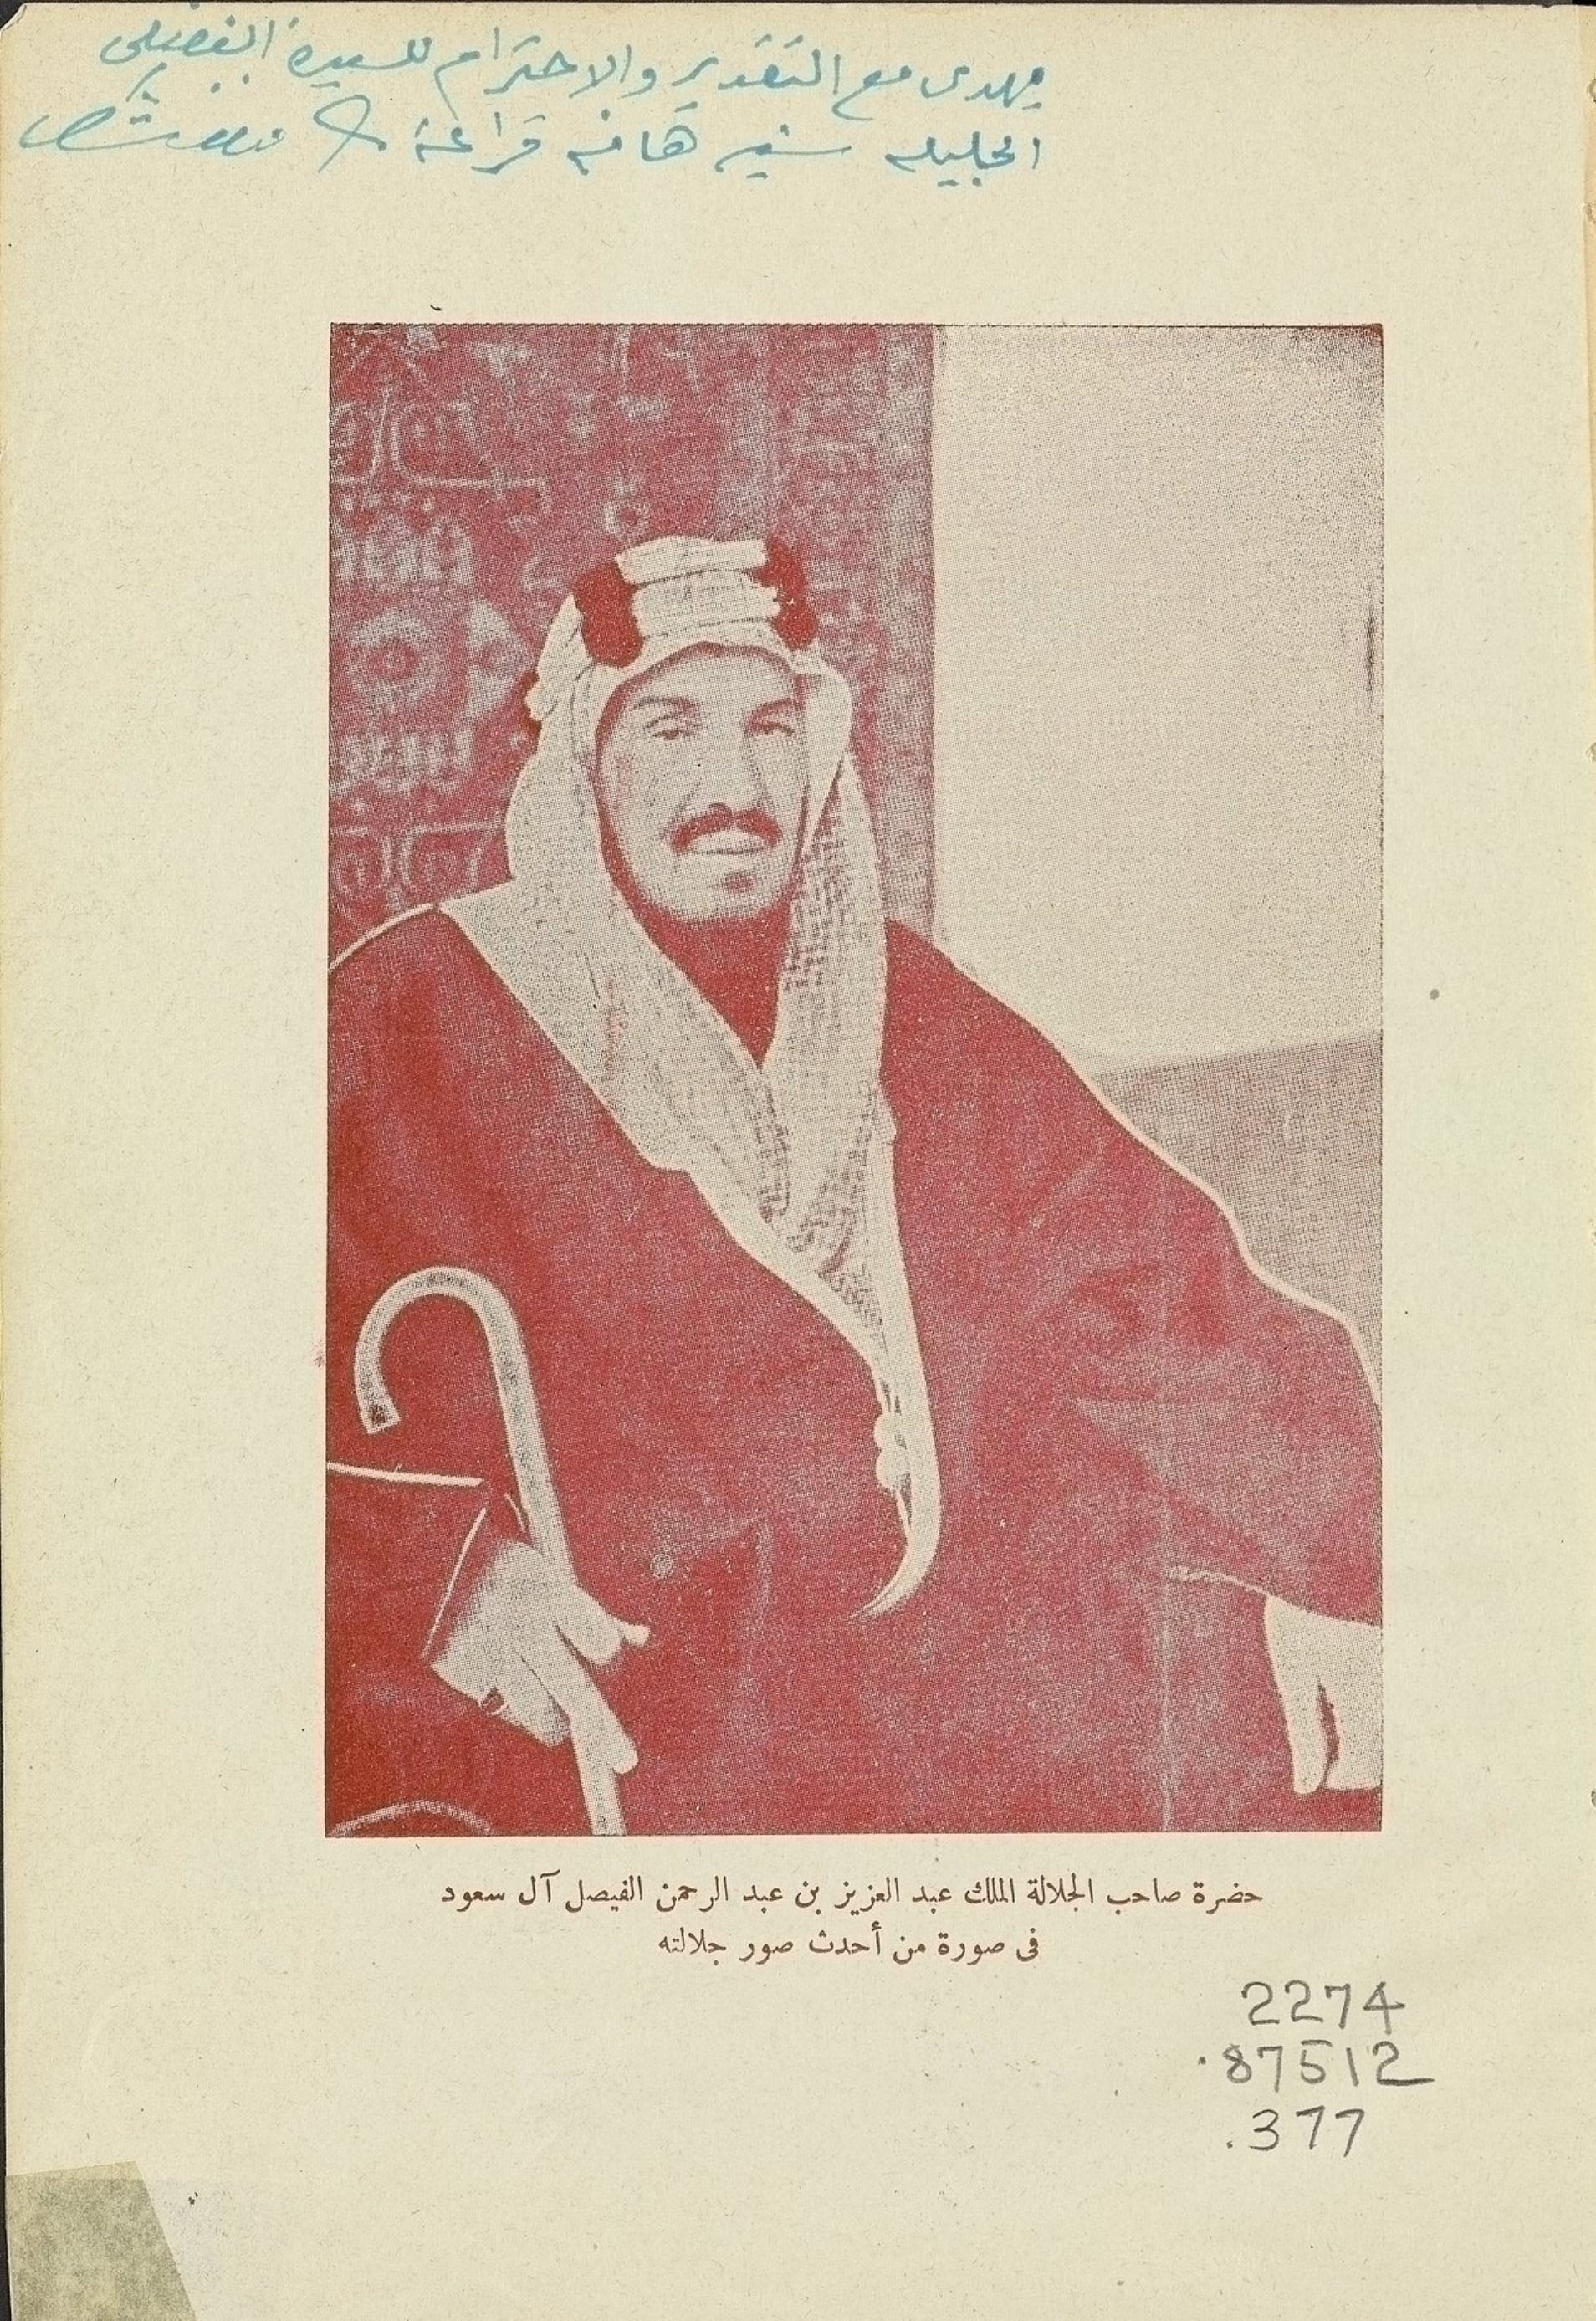 يهدى مع التقدير والاحترام للسيدة الفضلى
الجليله سنيه هانم قراعة
حضرة صاحب الجلالة الملك عبد العزيز بن عبد الرحمن الفيصل آل سعود
فى صورة من أحدث صور جلالته
2274
.87512
.377